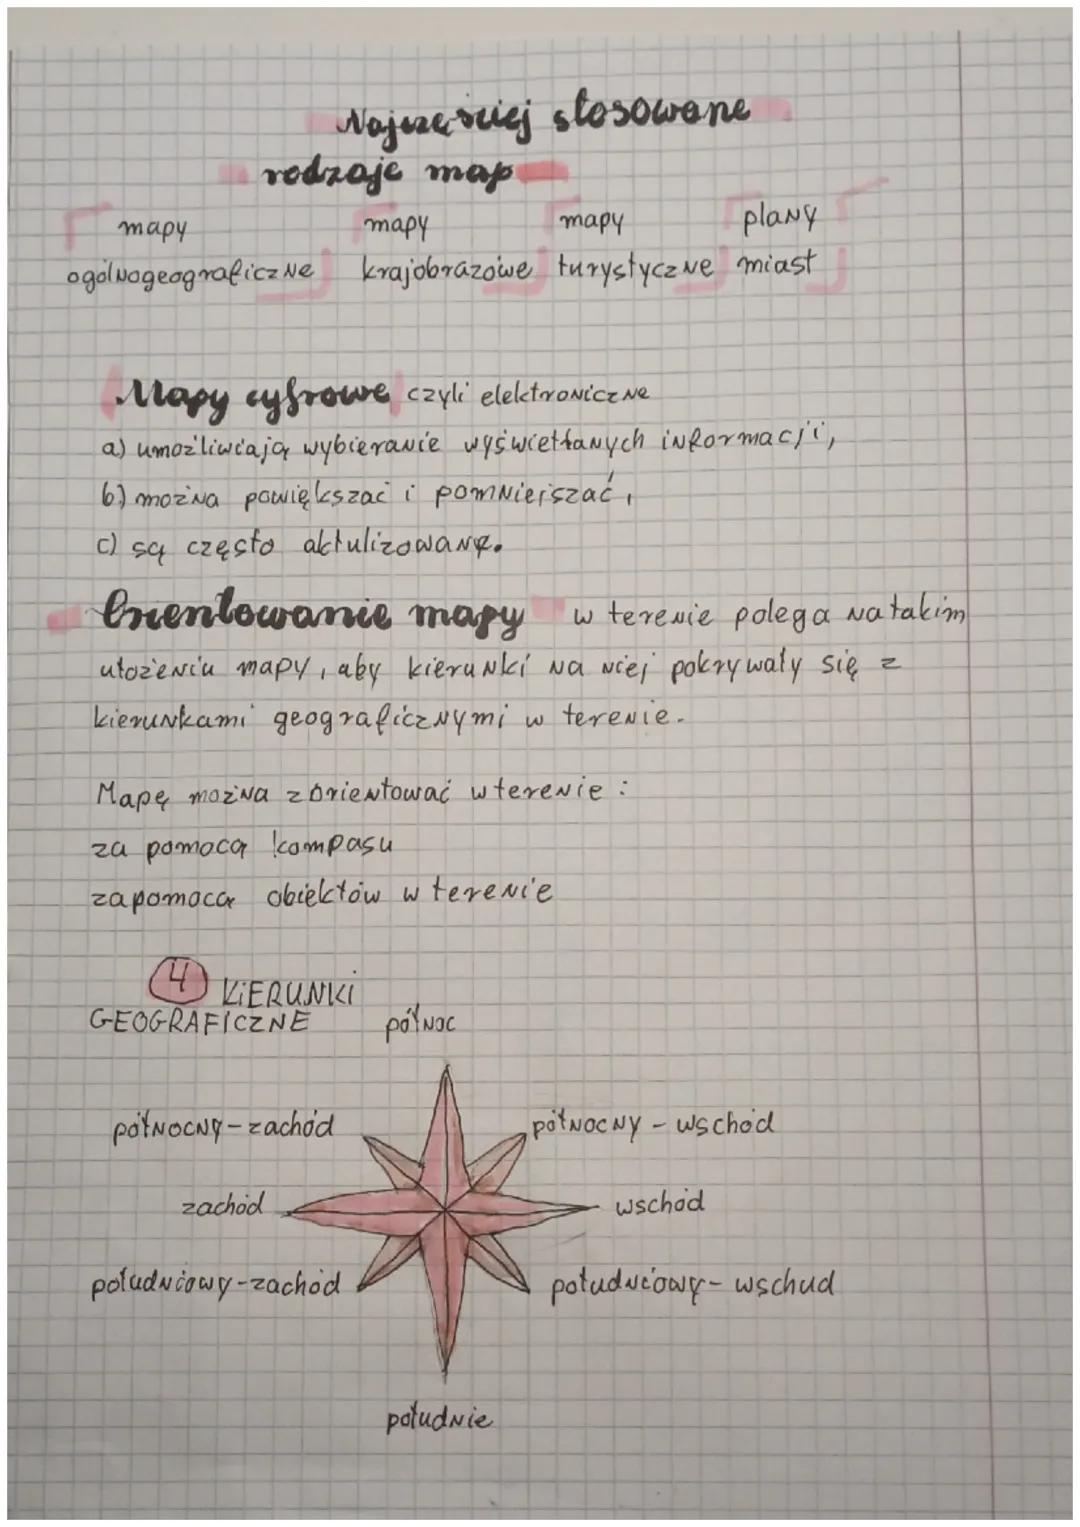 Najczęściej stosowane
rodzaje map
mapy mapy mapy plany
ogólnogeograficzne krajobrazowe turystyczne miast
Mapy cyfrowe czyli elektroniczne
a) umożliwiają wybieranie wyświetlanych informacji,
b) można powiększać i pomniejszać,
c) są często aktulizowane.
Orientowanie mapy w terenie polega na takim
ułożeniu mapy, aby kierunki na niej pokrywały się z
kierunkami geograficznymi w terenie.
Mapę można zorientować w terenie:
za pomocą kompasu
za pomocą obiektów w terenie
4 KIERUNKI
GEOGRAFICZNE
północ
północny-zachód północny-wschód
zachód wschód
południowy-zachód południowy-wschud
południe